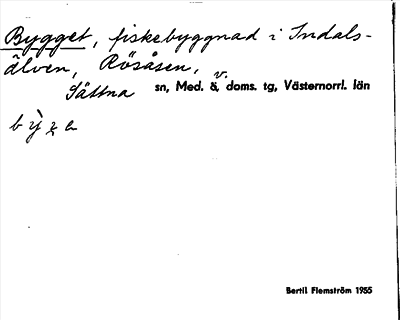 Bygget, fiskebyggnad i Indals-
älven, Rösåsen,
Sättna sn, Med. v. ä, doms. tg, Västernorrl. län
Bertil Flemström 1955